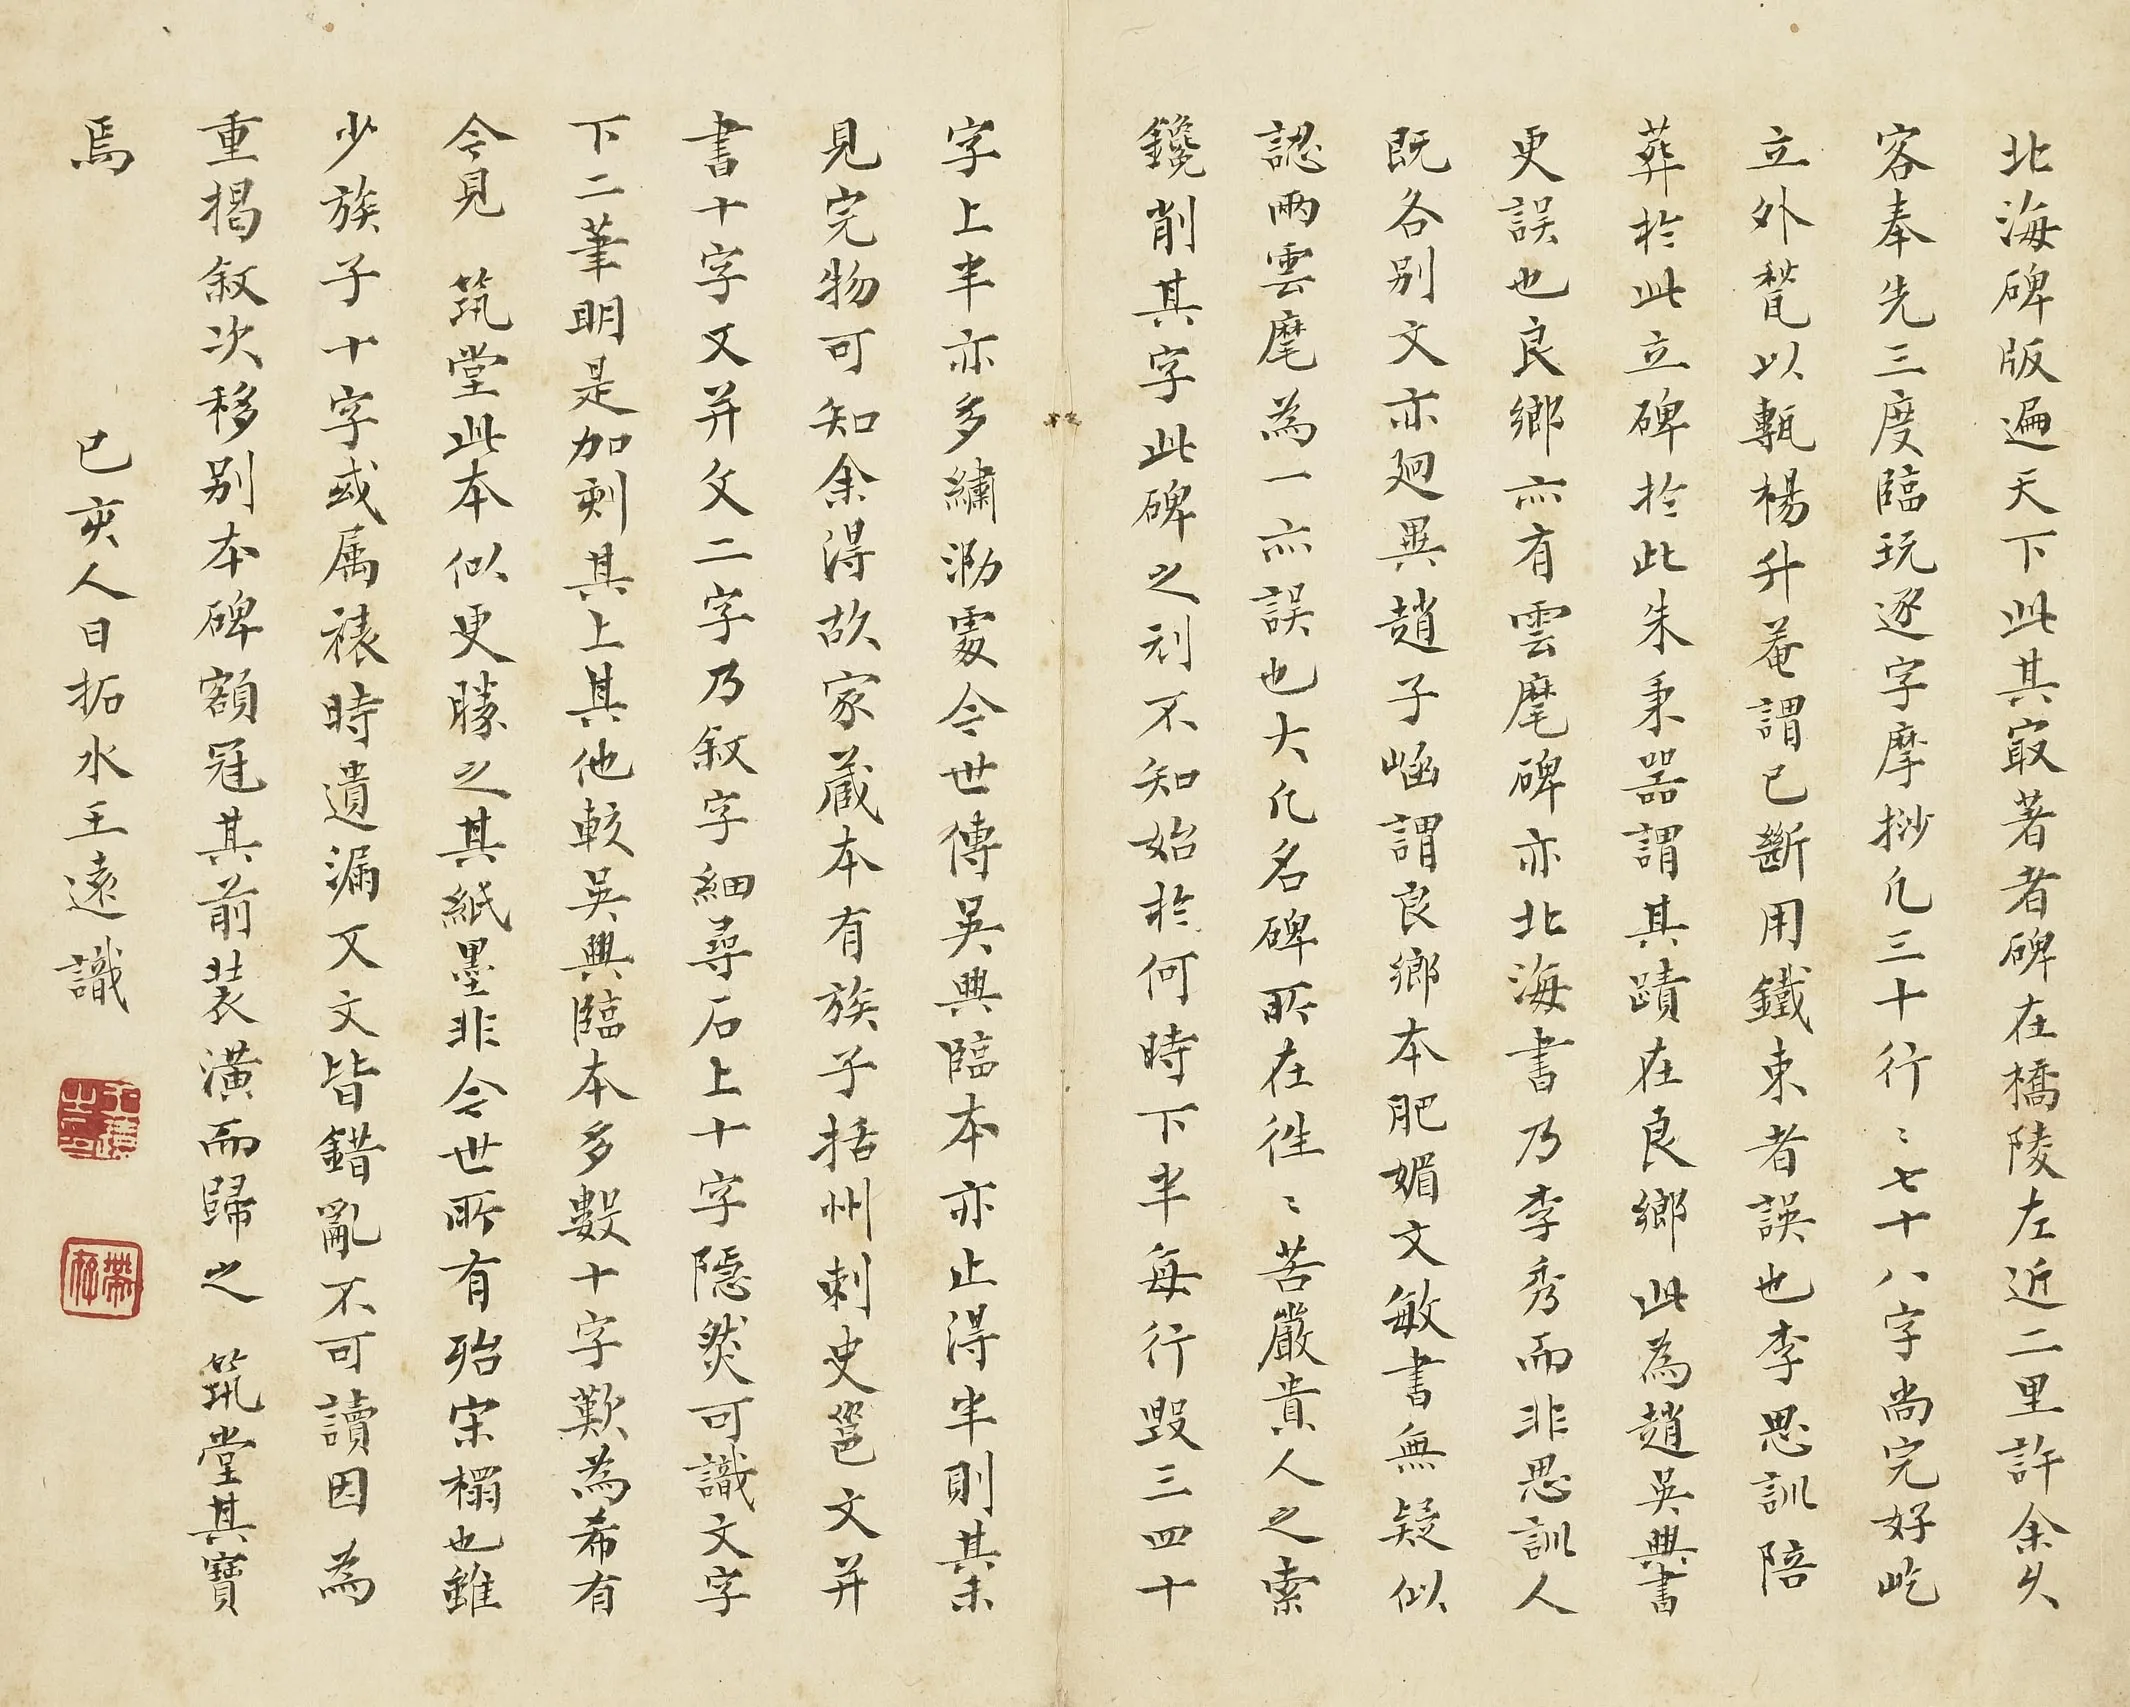 北海碑版遍天下此其㝡著者碑在橋陵左近二里許余久
客奉先三度臨玩逐字摩挱凡三十行〻七十八字尚完好屹
立外甃以甎楊升菴謂已斷用鐵束者誤也李思訓陪
葬於此立碑於此朱秉器謂其蹟在良鄉此為趙吳興書
更誤也良鄉亦有雲麾碑亦北海書乃李秀而非思訓人
既各别文亦迥異趙子崡謂良鄉本肥媚文敏書無疑似
認兩雲麾為一亦誤也大凡名碑所在徃〻苦嚴貴人之索
鑱削其字此碑之刓不知始於何時下半每行毀三四十
字上半亦多繡泐處今世傳吳興臨本亦止得半則其未
見完物可知余得故家蔵本有族子括州刺史邕文并
書十字又并文二字乃叙字細尋石上十字隱然可識文字
下二筆明是加刻其上其他較吳興臨本多數十字歎為希有
今見 筑堂此本似更勝之其紙墨非今世所有殆宋榻也雖
少族子十字或属裱時遺漏又文皆錯亂不可讀因為
重揭叙次移别本碑額冠其前装潢而歸之 筑堂其寶
焉 己亥人日拓水王遠識